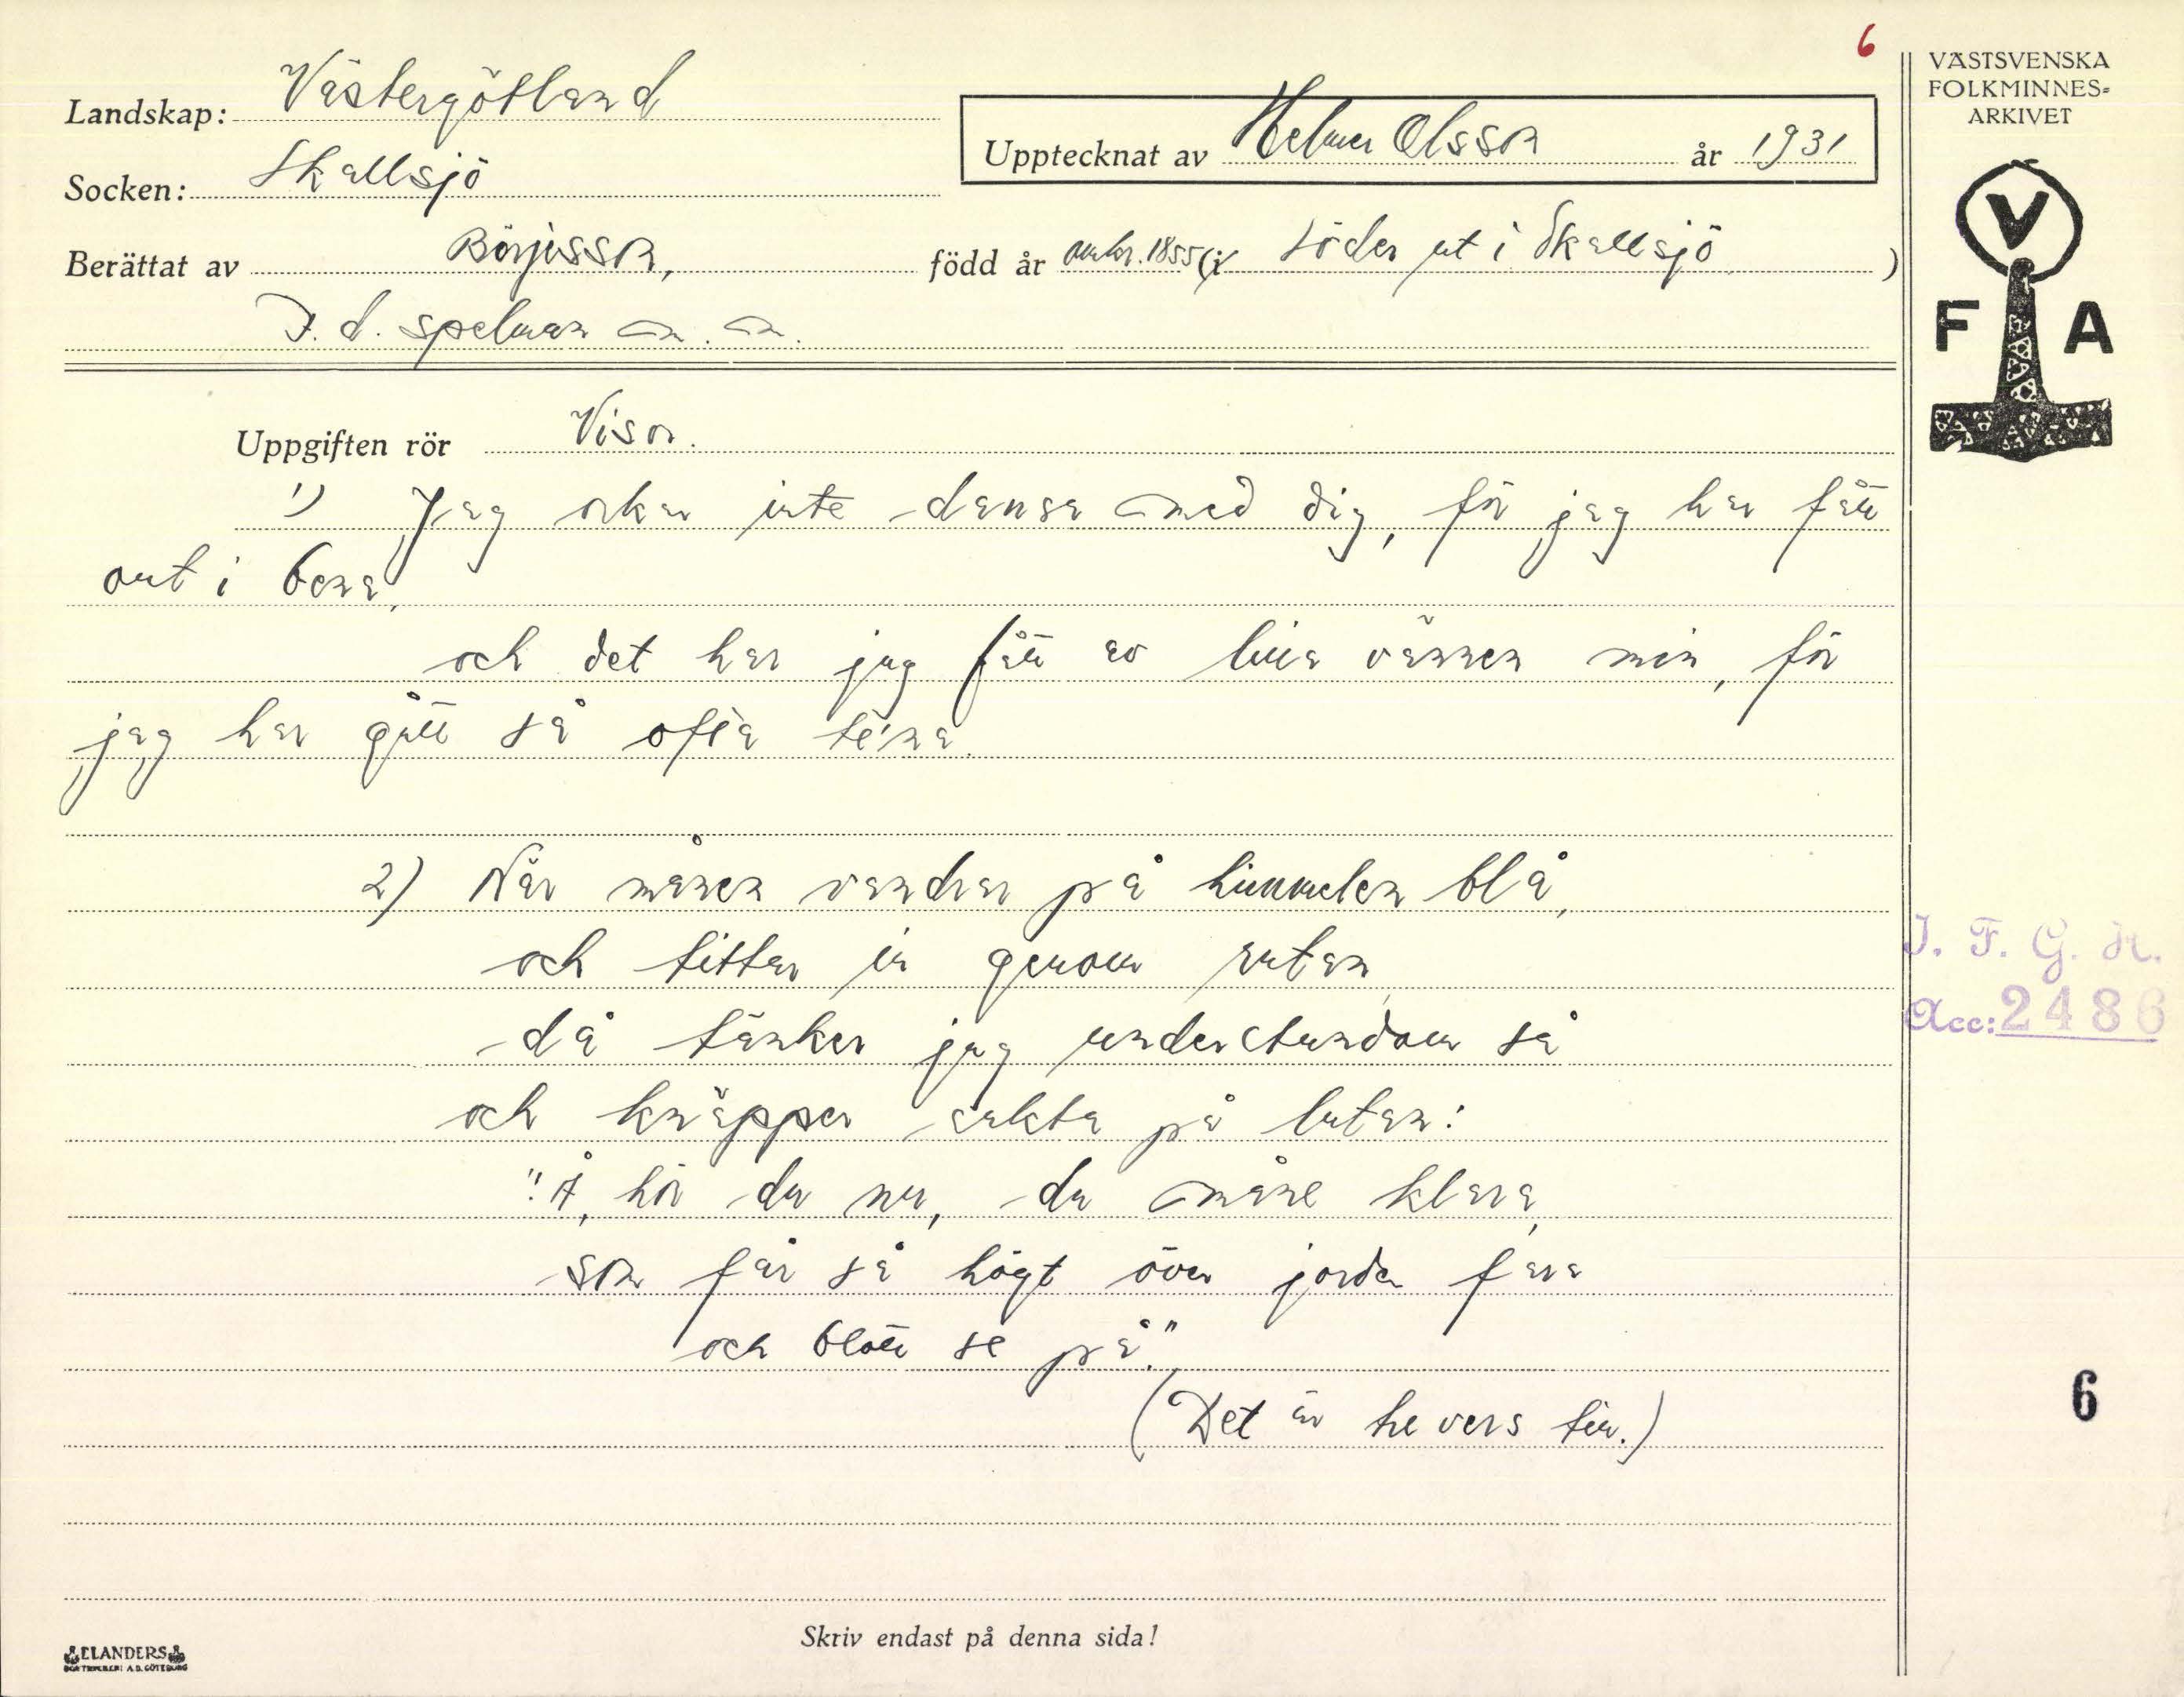 6
VÄSTSVENSKA
FOLKMINNES=
ARKIVET
Landskap: Västergötland
Upptecknat av Helmer Olsson år 1931
Socken: Skallsjö
Berättat av Börjesson, född år omkr. 1855 (i Söder ut i Skallsjö )
F. d. spelman m. m.
V
F A
Uppgiften rör Visor.
1) Jag orkar inte dansa med dig, för jag har fått
ont i bena,
och det har jag fått av lilla vännen min, för
jag har gått så ofta te'na.
2) När månen vandrar på himmelen blå,
och tittar in genom rutan,
då tänker jag understundom så
och knäpper sakta på lutan:
"Å, hör du nu, du måne klara,
som får så högt över jorden fara
och blott se på."
(Det är tre vers till.)
I. F. G. H.
Acc: 2486
6
Skriv endast på denna sida!
ELANDERS
BOKTRYCKERI A.B. GÖTEBORG